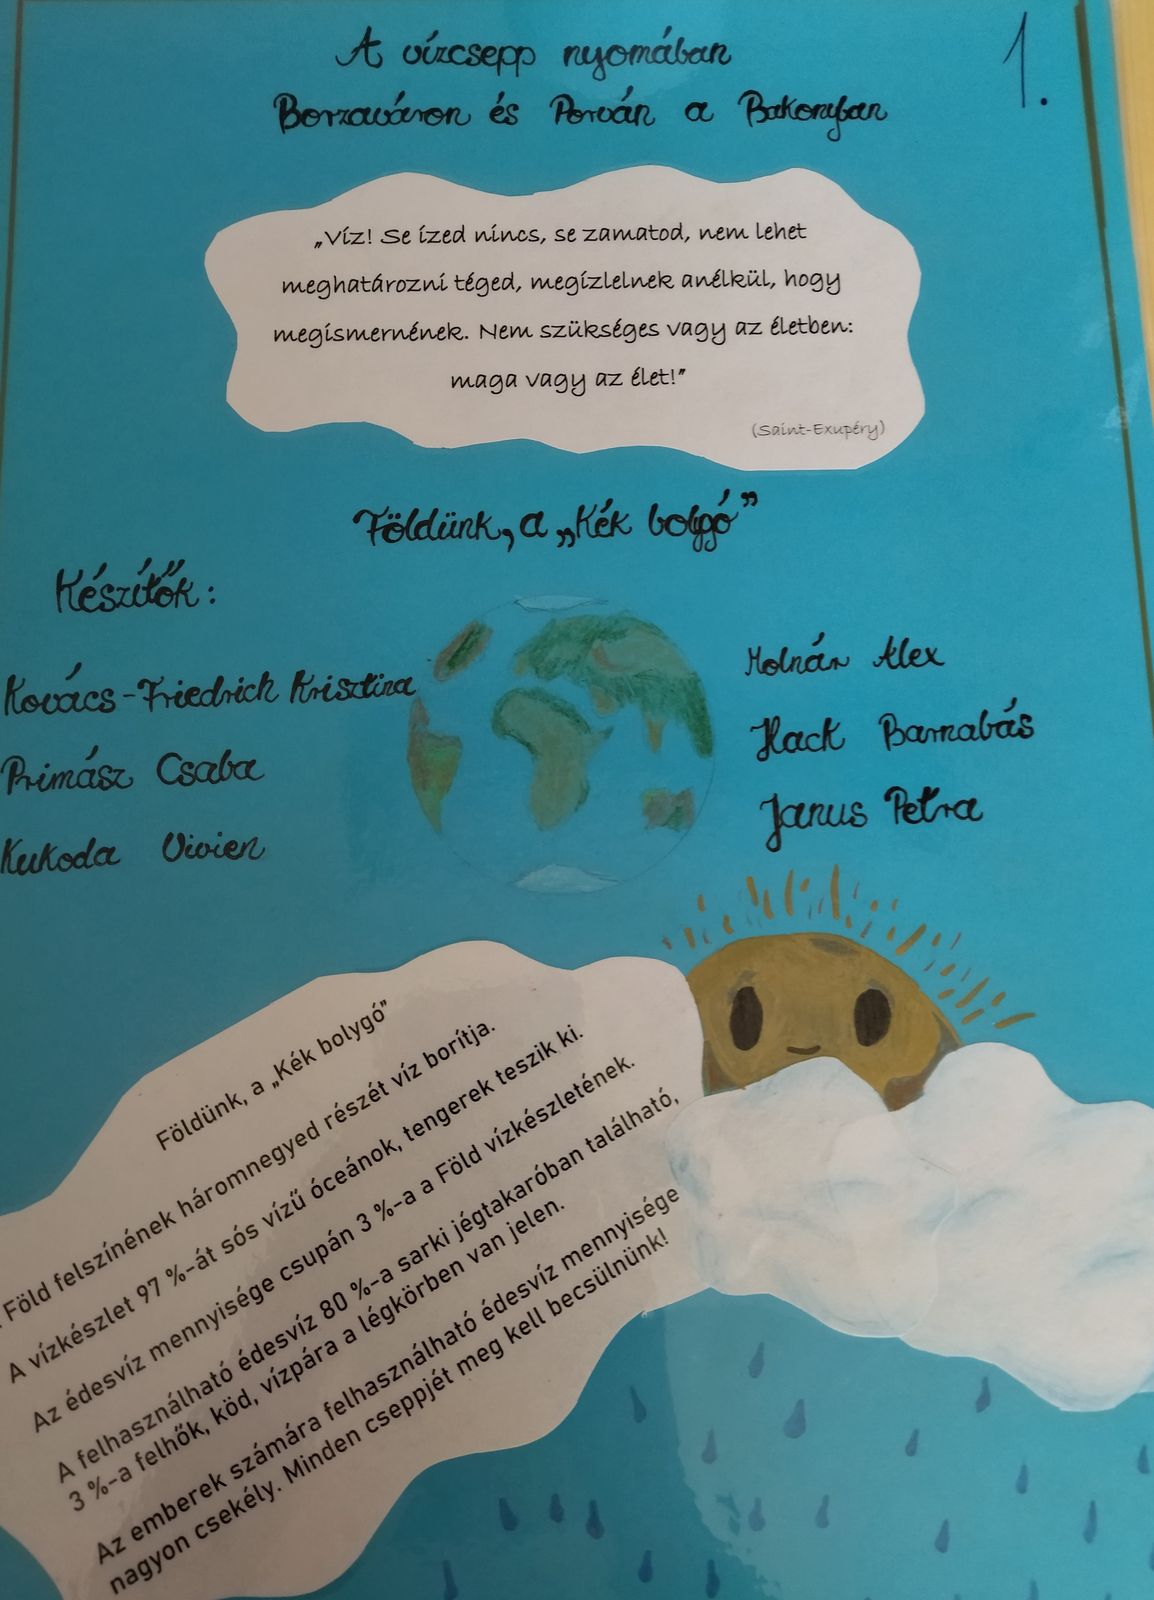 A vízcsepp nyomában
1.
Borzaváron és Porván a Bakonyban
„Víz! Se ízed nincs, se zamatod, nem lehet
meghatározni téged, megízlelnek anélkül, hogy
megismernének. Nem szükséges vagy az életben:
maga vagy az élet!”
(Saint-Exupéry)
Földünk, a „Kék bolygó”
Készítők:
Kovács-Friedrich Krisztina
Primász Csaba
Kukoda Vivien
Molnár Alex
Hack Barnabás
Janus Petra
Földünk, a „Kék bolygó”
Föld felszínének háromnegyed részét víz borítja.
A vízkészlet 97 %-át sós vízű óceánok, tengerek teszik ki.
Az édesvíz mennyisége csupán 3 %-a a Föld vízkészletének.
A felhasználható édesvíz 80 %-a sarki jégtakaróban található,
3 %-a felhők, köd, vízpára a légkörben van jelen.
Az emberek számára felhasználható édesvíz mennyisége
nagyon csekély. Minden cseppjét meg kell becsülnünk!